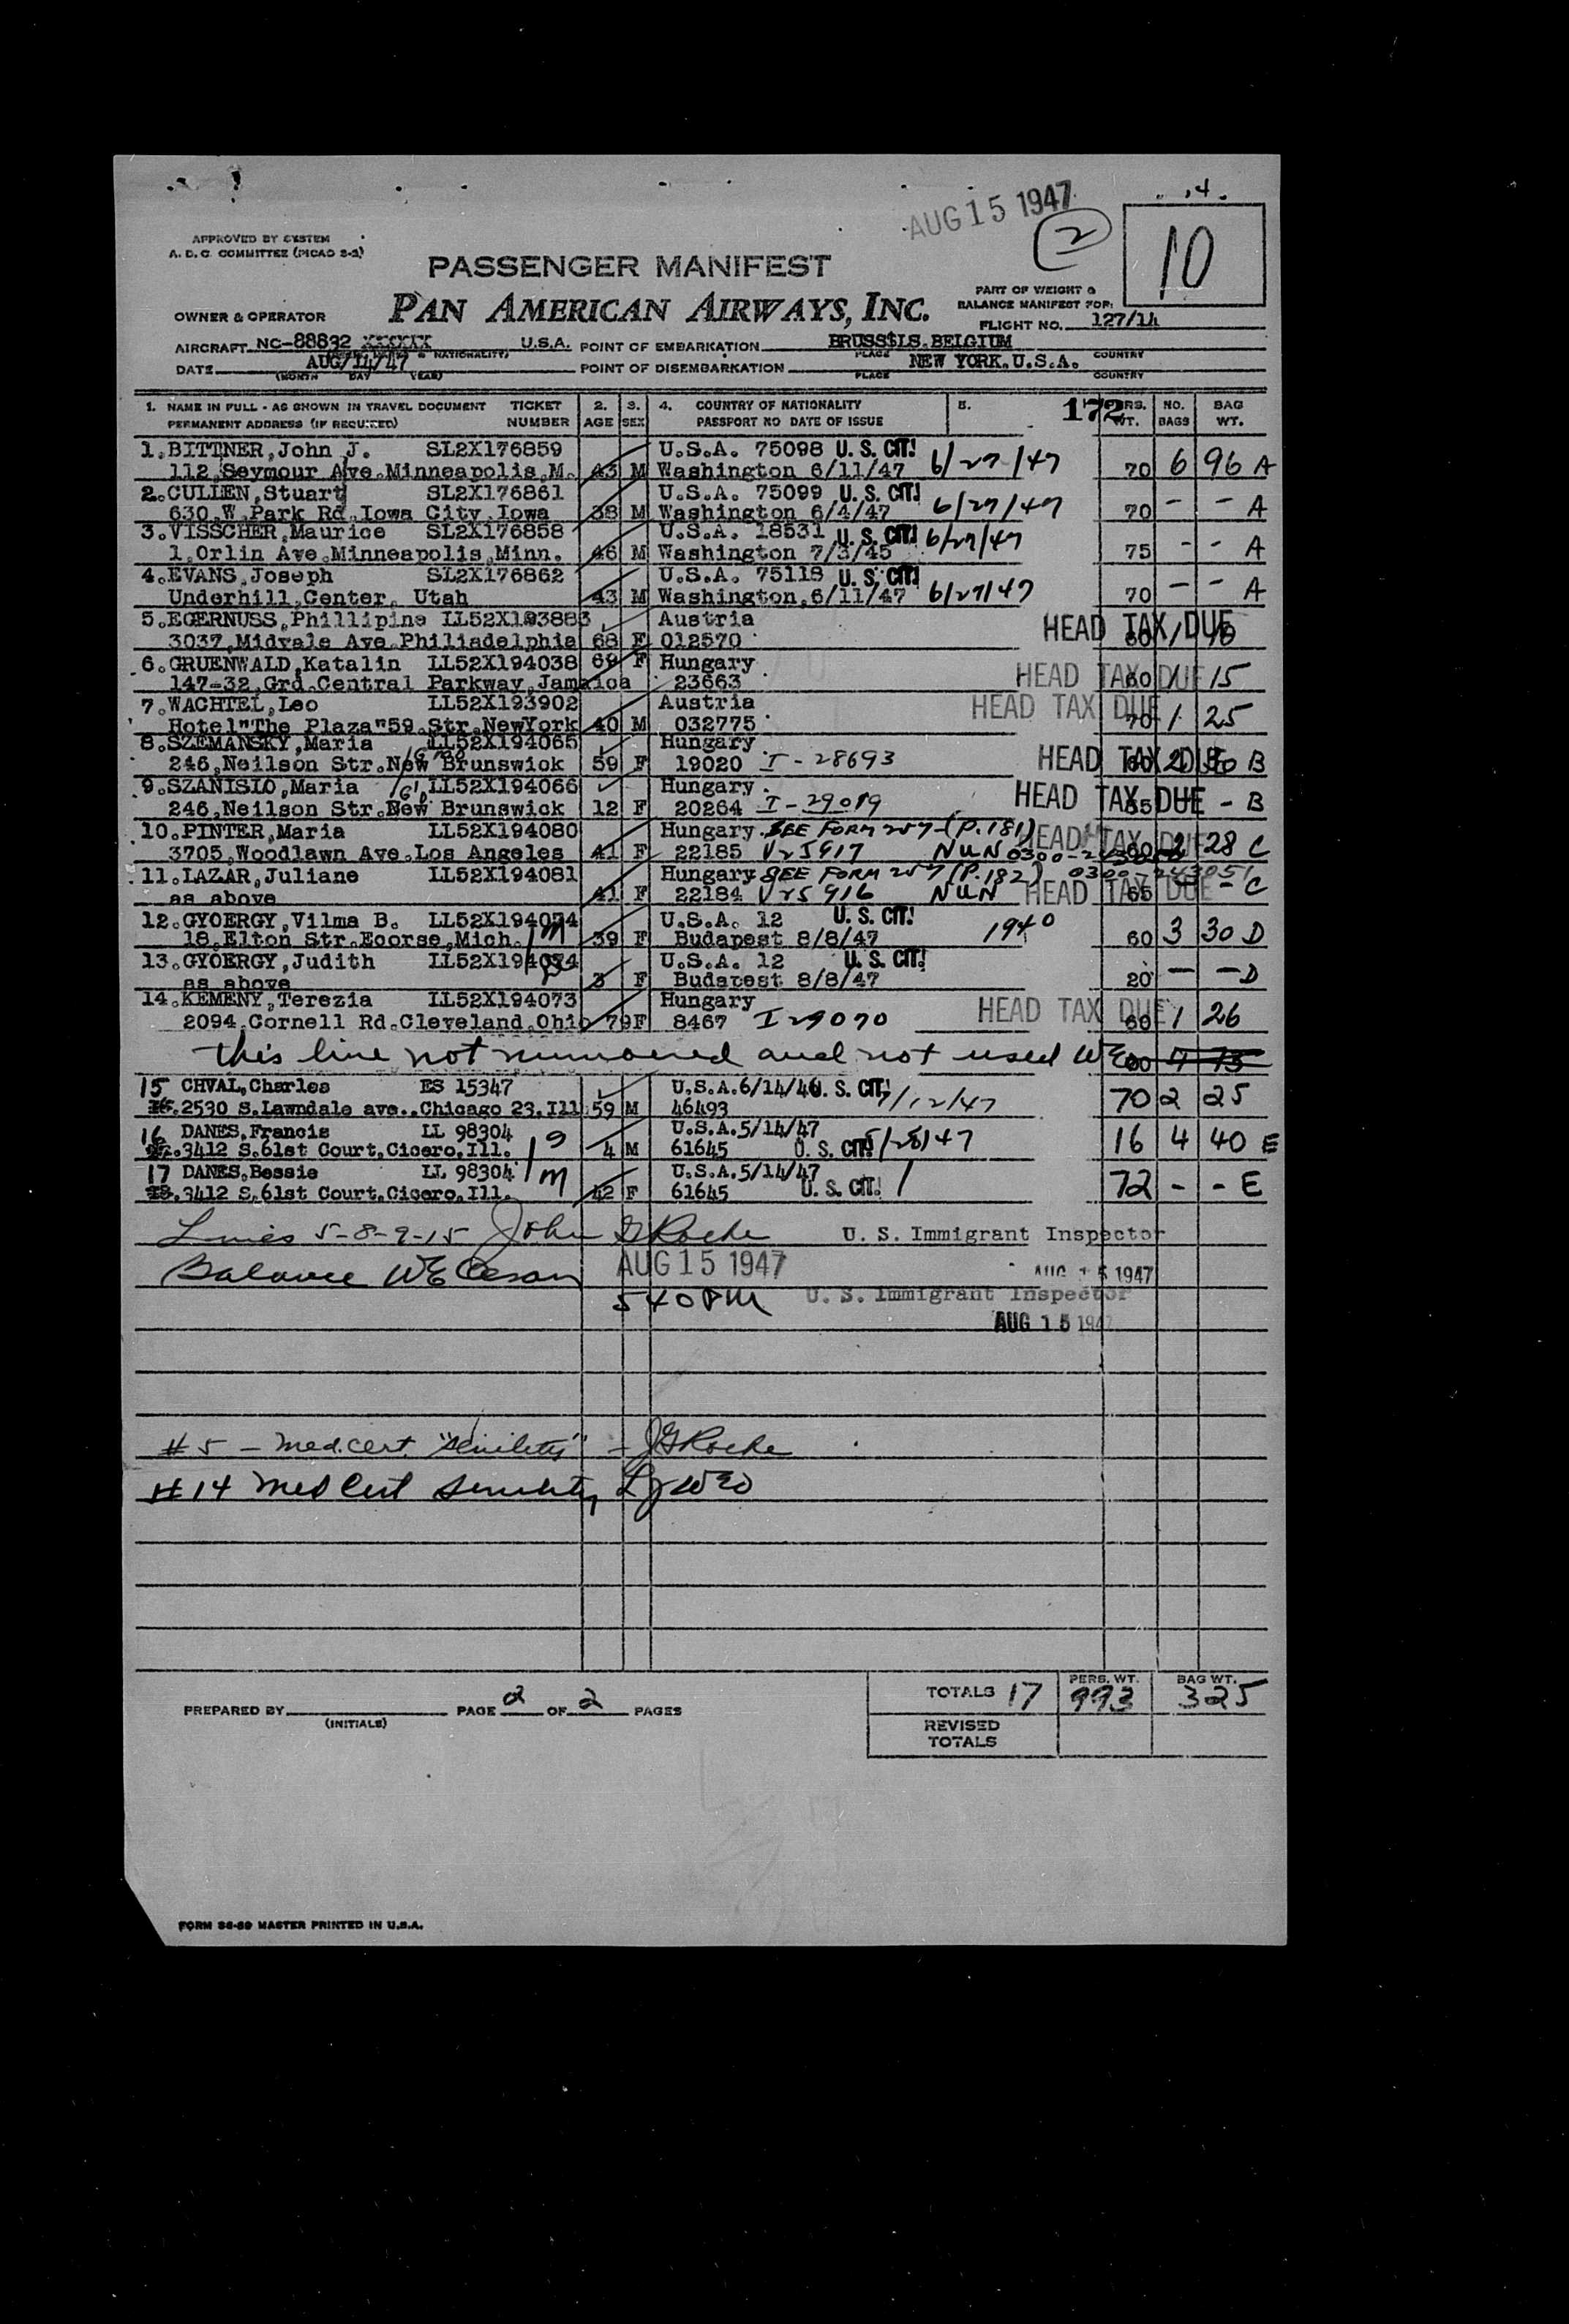 AUG 15 1947
2
10
APPROVED BY SYSTEM
A. D. C. COMMITTEE (PICAO S-2)
PASSENGER MANIFEST
PAN AMERICAN AIRWAYS, INC.
PART OF WEIGHT &
BALANCE MANIFEST FOR:
OWNER & OPERATOR
FLIGHT NO. 127/14
AIRCRAFT NC-88832 XXXXXX U.S.A. POINT OF EMBARKATION BRUSS$LS.BELGIUM
PLACE COUNTRY
DATE AUG/14/47 POINT OF DISEMBARKATION NEW YORK.U.S.A.
(MONTH DAY YEAR) PLACE COUNTRY
1. NAME IN FULL - AS SHOWN IN TRAVEL DOCUMENT TICKET 2. 3. 4. COUNTRY OF NATIONALITY 5. 172 PERS. NO. BAG
PERMANENT ADDRESS (IF REQUIRED) NUMBER AGE SEX PASSPORT NO DATE OF ISSUE WT. BAGS WT.
1.BITTNER,John J. SL2X176859 U.S.A. 75098 U. S. CIT!
112,Seymour Ave.Minneapolis,M. 43 M Washington 6/11/47 6/27/47 70 6 96 A
2.CULLEN,Stuart SL2X176861 U.S.A. 75099 U. S. CIT!
630,W.Park Rd.Iowa City,Iowa 38 M Washington 6/4/47 6/27/47 70 - - A
3.VISSCHER,Maurice SL2X176858 U.S.A. 18531 U. S. CIT! 6/27/47
1,Orlin Ave.Minneapolis,Minn. 46 M Washington 7/3/45 75 - - A
4.EVANS,Joseph SL2X176862 U.S.A. 75118 U. S. CIT!
Underhill,Center, Utah 43 M Washington,6/11/47 6/27/47 70 - - A
5.EGERNUSS,Phillipine LL52X193883 Austria HEAD TAX DUE
3037,Midvale Ave.Philiadelphia 68 F 012570 60 1
6.GRUENWALD,Katalin LL52X194038 69 F Hungary HEAD TAX DUE
147-32,Grd.Central Parkway,Jamaica 23663 60 1 15
7.WACHTEL,Leo LL52X193902 Austria HEAD TAX DUE
Hotel"The Plaza"59.Str.NewYork 40 M 032775 70 1 25
8.SZEMANSKY,Maria LL52X194065 Hungary HEAD TAX DUE
246,Neilson Str.New Brunswick 59 F 19020 I-28693 60 2 B
9.SZANISLO,Maria LL52X194066 Hungary HEAD TAX DUE
246,Neilson Str.New Brunswick 12 F 20264 I-29019 - B
10.PINTER,Maria LL52X194080 Hungary SEE FORM 257-(P.181) HEAD TAX DUE
3705,Woodlawn Ave.Los Angeles 41 F 22185 V25917 NUN 28 C
11.LAZAR,Juliane LL52X194081 Hungary SEE FORM 257 (P.182) HEAD TAX DUE
as above 41 F 22184 V25916 NUN 65 - C
12.GYOERGY,Vilma B. LL52X194074 U.S.A. 12 U. S. CIT!
18,Elton Str.Ecorse,Mich. m 39 F Budapest 8/8/47 1940 60 3 30 D
13.GYOERGY,Judith LL52X194074 U.S.A. 12 U. S. CIT!
as above 3 F Budapest 8/8/47 20 - - D
14.KEMENY,Terezia LL52X194073 Hungary HEAD TAX DUE
2094,Cornell Rd.Cleveland,Ohio 79F 8467 I29070 60 1 26
this line not numbered and not used
15 CHVAL,Charles ES 15347 U.S.A.6/14/46 U. S. CIT!
2530 S.Lawndale ave..Chicago 23.Ill 59 M 46493 7/12/47 70 2 25
16 DANES,Francis LL 98304 U.S.A.5/14/47
3412 S.61st Court,Cicero,Ill. 4 M 61645 U. S. CIT! 5/28/47 16 4 40 E
17 DANES,Bessie LL 98304 U.S.A.5/14/47
3412 S.61st Court,Cicero,Ill. m 42 F 61645 U. S. CIT! 72 - - E
Lines 5-8-9-15 John G Roche U. S. Immigrant Inspector
Balance AUG 15 1947 AUG 15 1947
540 PM U. S. Immigrant Inspector
AUG 15 1947
#5 - Med.cert. "Senility" - JGRoche
#14 Med Cert Senility
TOTALS 17 PERS. WT. 993 BAG WT. 325
PREPARED BY (INITIALS) PAGE 2 OF 2 PAGES
REVISED
TOTALS
FORM 86-89 MASTER PRINTED IN U.S.A.